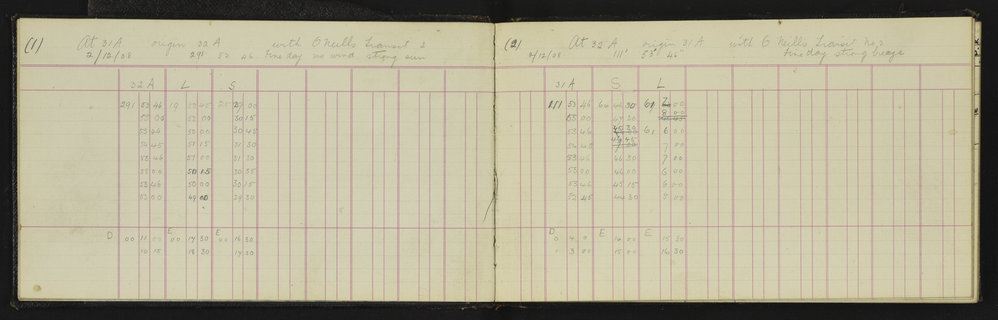 (1) At 31A origin 32A with O'Neills Transit 2
2/12/08 291 53 46 Fine day no wind strong sun
32 A L S
291 53 46 19 50 45 00
53 00 52 00 30 15
53 46 50 00 30 45
54 45 51 15 31 30
53 46 51 00 31 30
53 00 50 15 30 55
53 46 50 00 30 15
52 00 49 00 29 30
D E E
00 11 00 00 17 30 00 16 30
10 15 18 30 17 30
(2) At 32A origin 31A with O'Neills Transit No 2
2/12/08 111° 53' 46" Fine day strong breeze
31 A S L
111 53 46 64 46 30 61 7 00
53 00 47 30 8 00
53 46 45 30 61 6 00
54 45 7 00
53 46 46 30 7 00
53 00 46 00 6 00
53 46 45 15 6 00
52 45 44 30 5 00
D E E
0 4 0 16 00 15 30
1 3 00 15 00 16 30